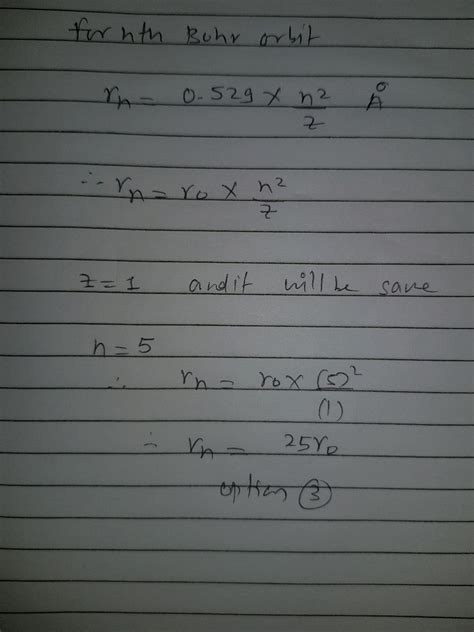 for nth Bohr orbit
rn = 0.529 × n²/z Å
∴ rn = r0 × n²/z
z = 1 and it will be same
n = 5
∴ rn = r0 × (5)²/(1)
∴ rn = 25r0
option ③